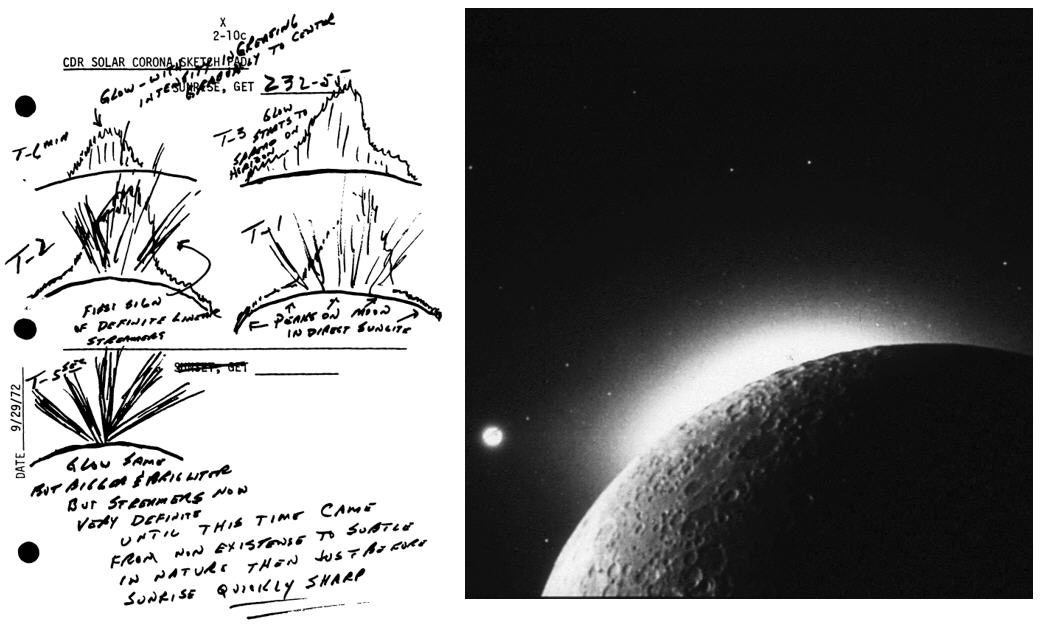 X
2-10c
CDR SOLAR CORONA SKETCH PAD
GLOW - WITH INCREASING
INTENSITY
GRADUALLY TO CENTER
SUNRISE, GET 232-55
T-6 MIN
T-3
GLOW
STARTS TO
SPREAD ON
HORIZON
T-2
T-1
FIRST SIGN
OF DEFINITE LINEAR
STREAMERS
PEAKS ON MOON
IN DIRECT SUNLITE
SUNSET, GET
T-5 SEC
DATE 9/29/72
GLOW SAME
BUT BIGGER & BRIGHTER
BUT STREAMERS NOW
VERY DEFINITE
UNTIL THIS TIME CAME
FROM NON EXISTENSE TO SUBTLE
IN NATURE THEN JUST BEFORE
SUNRISE QUICKLY SHARP